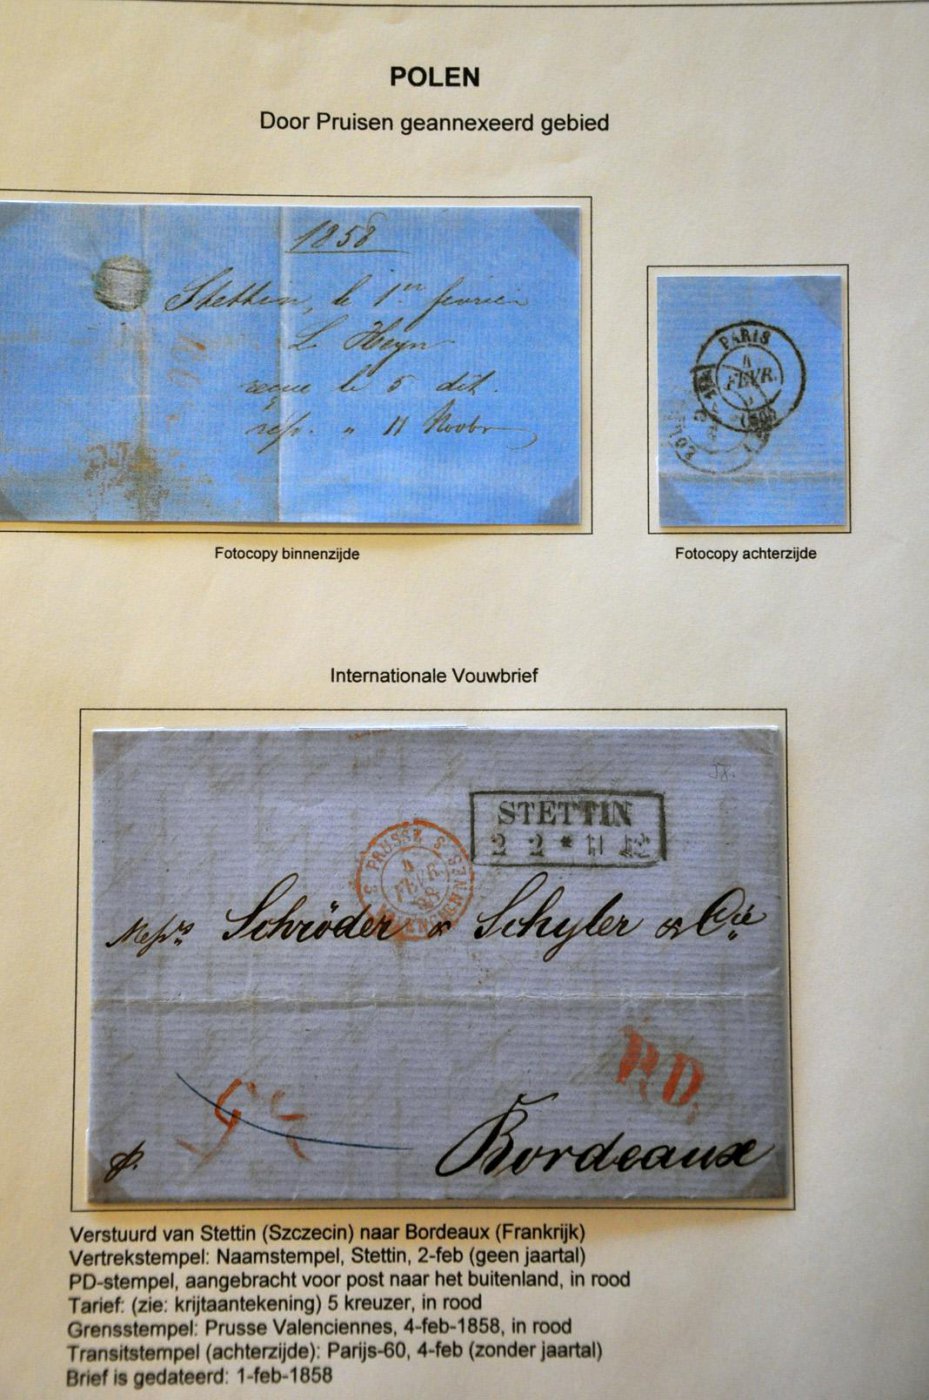 POLEN
Door Pruisen geannexeerd gebied
1858
Stettin, le 1er fevrier
L Heyn
reçue le 5 dit.
rép. " 11 Novbr
PARIS
4
FEVR.
(60)
Fotocopy binnenzijde
Fotocopy achterzijde
Internationale Vouwbrief
58.
STETTIN
2 2 * 11 12
PRUSSE
4
FEVR.
58
VALENCIENNES
Messrs Schröder & Schyler & Cie
P.D.
p.
Bordeaux
Verstuurd van Stettin (Szczecin) naar Bordeaux (Frankrijk)
Vertrekstempel: Naamstempel, Stettin, 2-feb (geen jaartal)
PD-stempel, aangebracht voor post naar het buitenland, in rood
Tarief: (zie: krijtaantekening) 5 kreuzer, in rood
Grensstempel: Prusse Valenciennes, 4-feb-1858, in rood
Transitstempel (achterzijde): Parijs-60, 4-feb (zonder jaartal)
Brief is gedateerd: 1-feb-1858